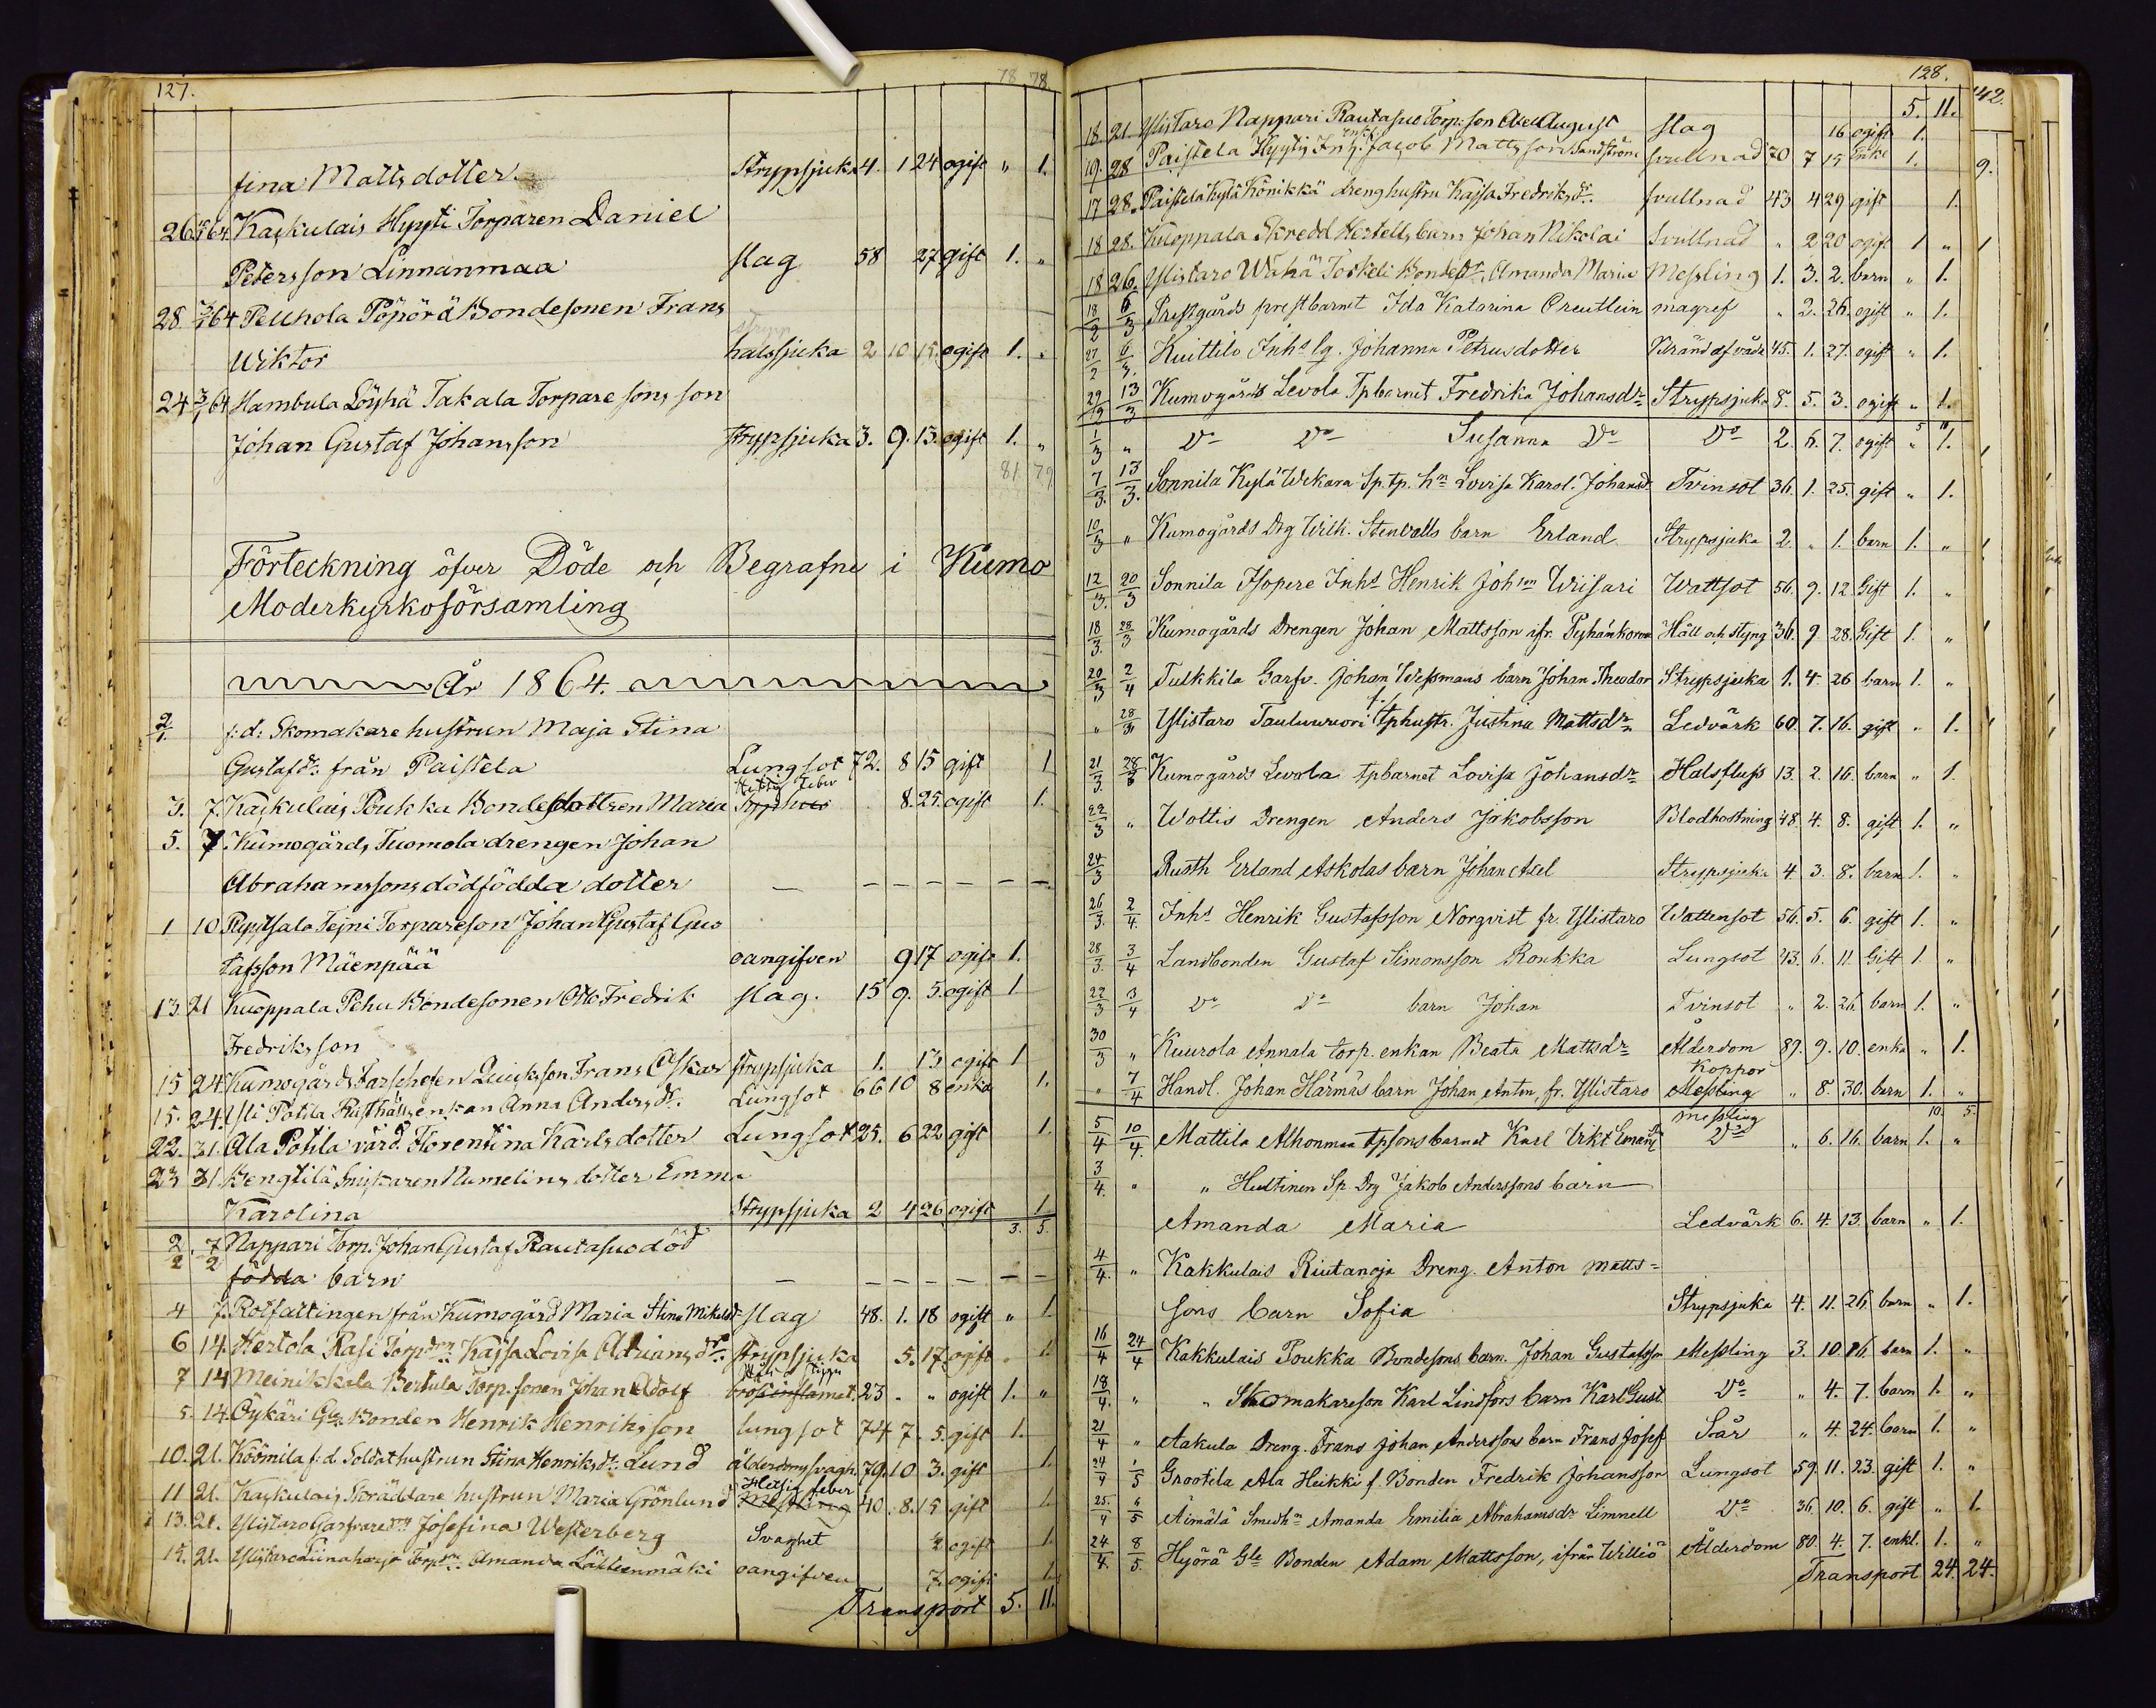 127.
78 78.
fina Mattsdotter. Strypsjuka 4. 1 24 ogift " 1.
26. 3/1 64 Kaskulais Hyyti Torparen Daniel
Petersson Linnanmaa slag 58 27 gift 1. "
28. 3/1 64 Pelihola Pöpörä Bondesonen Frans
stryp
Wiktor halssjuka 2 10 15. ogift 1. "
24 3/1 64 Hambula Löyhä Takala Torpare sons son
Johan Gustaf Johansson strypsjuka 3. 9. 13. ogift 1. "
81 79
Förteckning öfver Döde och Begrafne i Kumo
Moderkyrkoförsamling
År 1864.
2/1. f:d: Skomakare hustrun Maja Stina
Gustafsdr: från Paistela Lungsot 72. 8 15 gift 1
Hetsig feber
3. 7. Kaskulais Poukka Bondedottren Maria 8. 25. ogift 1.
5. 7. Kumogårds Tuomola drengen Johan
Abrahamssons dödfödda dotter — — — — — — —
1 10 Pyytsala Tejni Torpareson Johan Gustaf Gus
tafsson Mäenpää oangifven 9 17 ogift 1.
13. 21 Kuoppala Pehu Bondesonen Otto Fredrik slag. 15 9. 5. ogift 1
Fredriksson
15 24 Kumogårds Quickson Frans Oskar strypsjuka 1. 13 ogift 1
15. 24. Yli Potila Rusthålls enkan Anna Andersdr: Lungsot 66 10 8 enka 1.
22. 31. Ala Potila värd. Florentina Karlsdotter Lungsot 25. 6 22 gift 1.
23 31 Bengtilä Snickaren Numelins dotter Emma
Karolina Strypsjuka 2 4 26 ogift 1
3. 5.
2/2 7/2 Nappari Torp. Johan Gustaf Rautasuo död
födda barn — — — — — — —
4 7. Rotfattingen från Kumogård Maria Stina Mikelsdr slag 48. 1. 18 ogift " 1.
6 14. Hertola Rasi Torpdn Kajsa Lovisa Adriansdr strypsjuka 5. 17 ogift. 1.
7 14 Meinikkala Bertula Torp. sonen Johan Adolf bröstinflamat. 23 - " ogift 1. "
5. 14. Öykäri Gla Bonden Henrik Henriksson lungsot 74 7. 5. gift 1.
10. 21. Köömila f:d. Soldathustrun Stina Henriksdr: Lund ålderdomssvagh. 79. 10 3. gift 1.
Hetsig feber
11 21. Kaskulais Skräddare hustrun Maria Grönlund Messling 40. 8. 15 gift 1.
13. 21. Ylistaro Garfvaredtr Josefina Westerberg Svaghet 2 ogift 1.
15. 21. Ylistaro Liinaharja Torpdtr Amanda Lähteenmäki oangifven 7. ogift 1.
Transport 5. 11.
128.
142.
5. 11.
18. 21. Ylistaro Nappari Rautasuo Torp: son Abel August slag 16 ogift 1.
19. 28 Paistela Hyyti Inh. Jacob Mattsson Sandström svullnad 70 7 15 Enkl 1.
9.
17 28. Paistela Kylä Könikkä dreng hustru Kajsa Fredriksdr. svullnad 43 4 29 gift 1.
18 28. Kuoppala Skredd Hertells barn Johan Nikolai Svullnad " 2 20 ogift 1 "
18 26. Ylistaro Wähä Joskeli Bondedr. Amanda Maria Messling 1. 3. 2. barn " 1.
18/2 6/3 Prestgårds prestbarnet Ida Katarina Creutlein magref " 2. 26. ogift " 1.
27/2 6/3. Kuittilo Inhs lg. Johanna Petrusdotter Bränd af våda 45. 1. 27. ogift " 1.
29/2 13/3 Kumogårds Levola Tpbarnet Fredrika Johansdr Strypsjuka 8. 5. 3. ogift " 1.
5 10
1/3 " Do Do Susanna Do Do 2. 6. 7. ogift " 1.
7/3. 13/3. Sonnila Kylä Wekara Sp. tp. hn Lovisa Karol. Johansdr Tvinsot 36. 1. 25. gift " 1.
10/3 " Kumogårds Drg Wilh. Stenvalls barn Erland Strypsjuka 2. " 1. barn 1. "
12/3. 20/3 Sonnila Isopere Inhs Henrik Johson Wiisari Wattsot 56. 9. 12. Gift 1. "
18/3. 28/3 Kumogårds Drengen Johan Mattsson ifr. Pyhänkorva Håll och styng 36. 9. 28. Gift 1. "
20/3 2/4 Tulkkila Garfv. Johan Wessmans barn Johan Theodor Strypsjuka 1. 4. 26 barn 1. "
" 28/3 Ylistaro Tauluvuori f. tphustr. Justina Mattsdr Ledvärk 60. 7. 16. gift " 1.
21/3. 28/3 Kumogårds Levola tpbarnet Lovisa Johansdr Halsfluss 13. 2. 16. barn " 1.
22/3 " Wottis Drengen Anders Jakobsson Blodhostning 48. 4. 8. gift 1. "
24/3 Ruoth Erland Askolas barn Johan Axel Strypsjuka 4. 3. 8. barn 1. "
26/3. 2/4. Inhs Henrik Gustafsson Norqvist fr. Ylistaro Wattensot 56. 5. 6. gift 1. "
28/3. 3/4 Landbonden Gustaf Simonsson Ronkka Lungsot 43. 6. 11. Gift 1. "
22/3 3/4 Do Do barn Johan Tvinsot " 2. 26. barn 1. "
30/3 " Kuurola Annala torp. enkan Beata Mattsdr Ålderdom 89. 9. 10. enka " 1.
Koppor
" 7/4 Handl. Johan Härmäs barn Johan Anton fr. Ylistaro Messling " 8. 30. barn 1. "
10. 5.
messling
5/4 10/4. Mattila Alhonmaa tpsons barnet Karl Vikt Emanl Do " 6. 16. barn 1. "
3/4. " " Huhtinen Sp. Drg Jakob Anderssons barn
Amanda Maria Ledvärk 6. 4. 13. barn " 1.
4/4. " Kakkulais Riutanoja Dreng. Anton Matts=
sons barn Sofia Strypsjuka 4. 11. 26. barn " 1.
16/4 24/4 Kakkulais Poukka Bondesons barn. Johan Gustafsson Messling 3. 10. 26. barn 1. "
18/4. " " Skomakareson Karl Lindfors barn Karl Gust. Do " 4. 7. barn 1. "
21/4 " Aakula Dreng. Frans Johan Anderssons barn Frans Josef Sår " 4. 24. barn 1. "
24/4 1/5 Grootila Ala Heikki f. Bonden Fredrik Johansson Lungsot 59. 11. 23. gift 1. "
25./4 6/5 Äimälä Smedhn Amanda Emilia Abrahamsdr Limnell Do 36. 10. 6. gift " 1.
24/4. 8/5. Hyörä Gle Bonden Adam Mattsson, ifrån Williö Ålderdom 80. 4. 7. enkl. 1. "
Transport 24. 24.